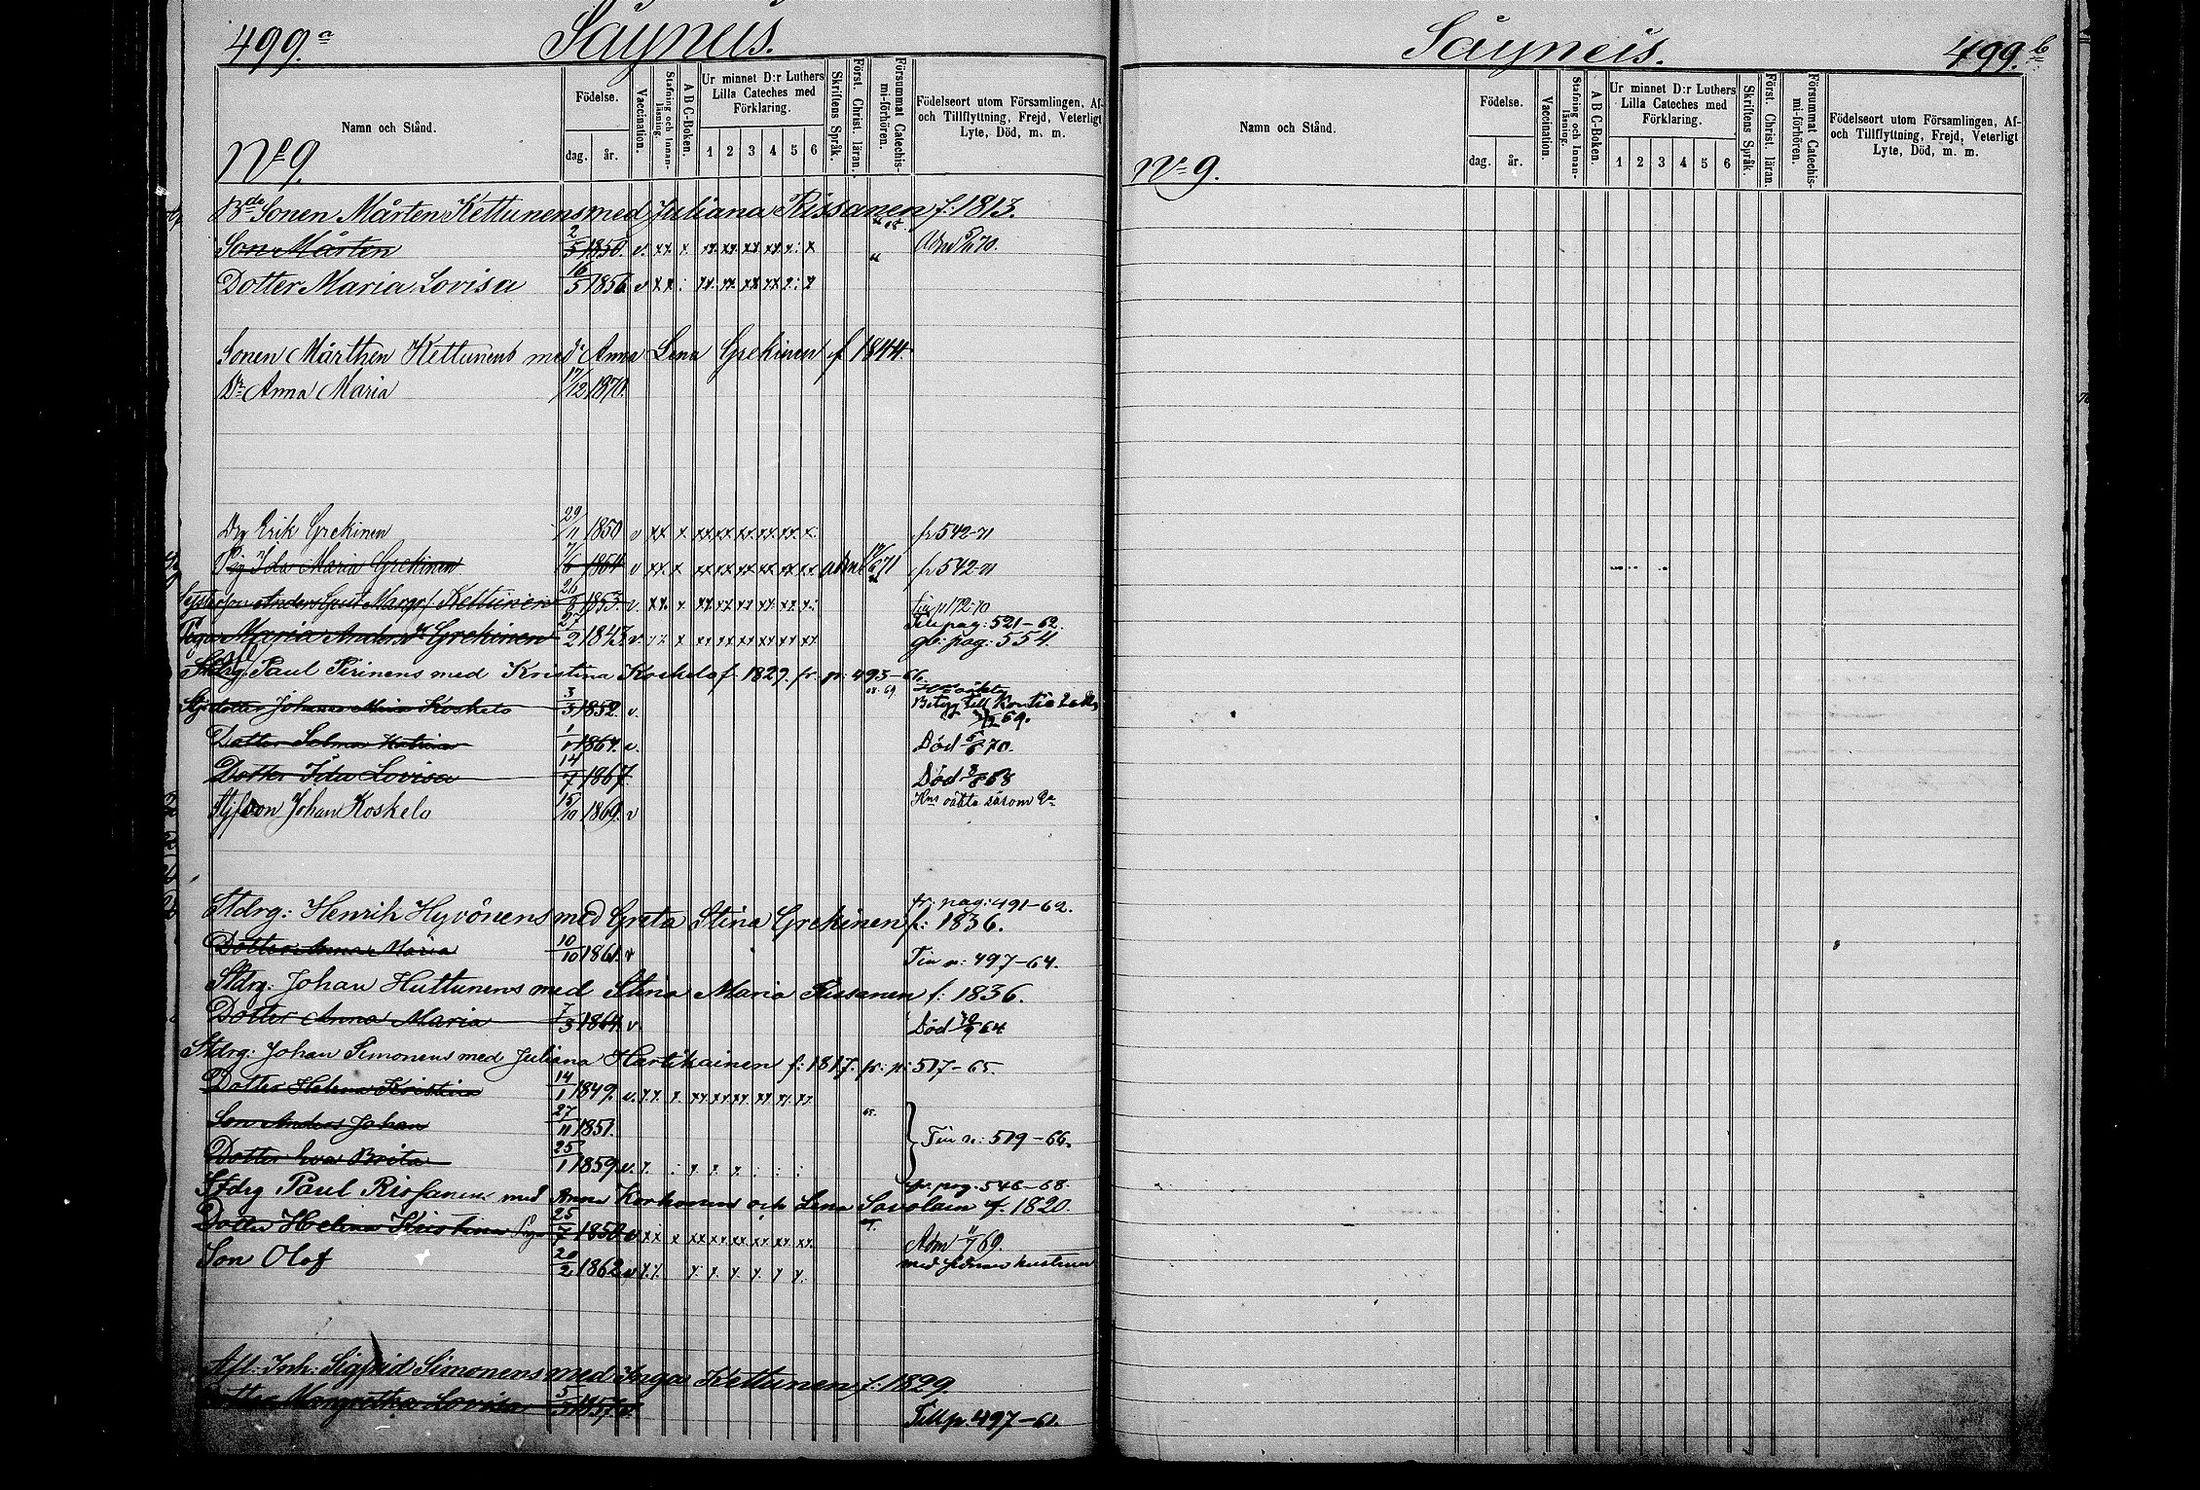 499.a Säyneis.
Namn och Stånd. Födelse. dag. år. Vaccination. Stafning och Innan-läsning. A B C-Boken. Ur minnet D:r Luthers Lilla Cateches med Förklaring. 1 2 3 4 5 6 Skriftens Språk. Först. Christ. läran. Försummat Catechis-mi-förhören. Födelseort utom Församlingen, Af- och Tillflyttning, Frejd, Veterligt Lyte, Död, m. m.
No 9.
Bde Sonen Mårten Kettunens med Juliana Rissanen f. 1813.
Son Mårten 2/5 1850. v. xx x xx xx xx xx x: x Adm 70.
Dotter Maria Lovisa 16/5 1856 v x x :
Sonen Mårthen Kettunens med Anna Lena Grekinen f 1844
Dr Anna Maria 17/12 1870.
Drg Erik Grekinen 29/11 1850 v xx x xx xx xx xx xx x: fr 542-71
Pig Ida Maria Grekinen 7/6 1854 v xx x xx xx xx xx xx xx adm 71 fr 542-71
Kettunen 1853. v. 172-70
Pigan Maria Anders dr Grekinen 27/2 1843 v. Till pag: 521-62. pag: 554.
Stdrg. Paul Pirinens med Kristina Koskelo f. 1829. fr. p: 493-66.
Stjfdotter Johanna Koskelo 3/3 1852. v. Betyg till 69.
Dotter Selma Katrina 1864. v. Död 70.
Dotter Ida Lovisa 14/7 1867. Död 8/8 68
Stjfson Johan Koskelo 15/10 1869. v oäkta såsom
Stdrg: Henrik Hyvönens med Greta Stina Grekinen f: 1836. fr: pag: 491-62.
Dotter Anna Maria 10/10 1861. v 497-64.
Stdrg: Johan Huttunens med Stina Maria Rissanen f: 1836.
Dotter Anna Maria 7/3 1864. v. Död 64
Stdrg: Johan Simonens med Juliana Hartikainen f: 1817. fr: p: 517-65.
Dotter Helena Kristina 14/1 1849. v.
Son Anders Johan 27/11 1851. 519-66.
Dotter Eva Brita 25/1 1859. v.
Stdrg Paul Rissanens med Anna Korhonens och Lena Savolain f. 1820. fr. pag. 546-68.
Dotter Helena Kristina 25/7 1850 v xx x Adm 69.
Son Olof 20/2 1862 v
Afl. Inh: Sigfrid Simonens med Inga Kettunen f: 1829
Dotter Margretha Lovisa 5/5 1857. v. Till p. 497-61.
Säyneis. 499.b
Namn och Stånd. Födelse. dag. år. Vaccination. Stafning och Innan-läsning. A B C-Boken. Ur minnet D:r Luthers Lilla Cateches med Förklaring. 1 2 3 4 5 6 Skriftens Språk. Först. Christ. läran. Försummat Catechis-mi-förhören. Födelseort utom Församlingen, Af- och Tillflyttning, Frejd, Veterligt Lyte, Död, m. m.
No 9.